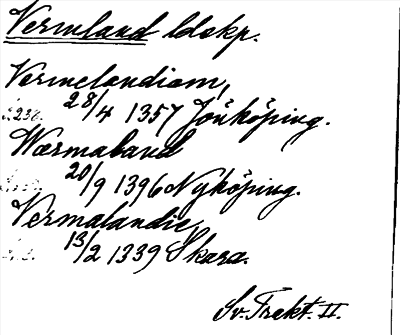 Vermland ldskp.
Vermelandiam,
s. 236. 28/4 1357 Jönköping.
Wærmaland
20/9 1396 Nyköping.
Vermalandie,
13/2 1339 Skara.
Sv. Trakt. II.